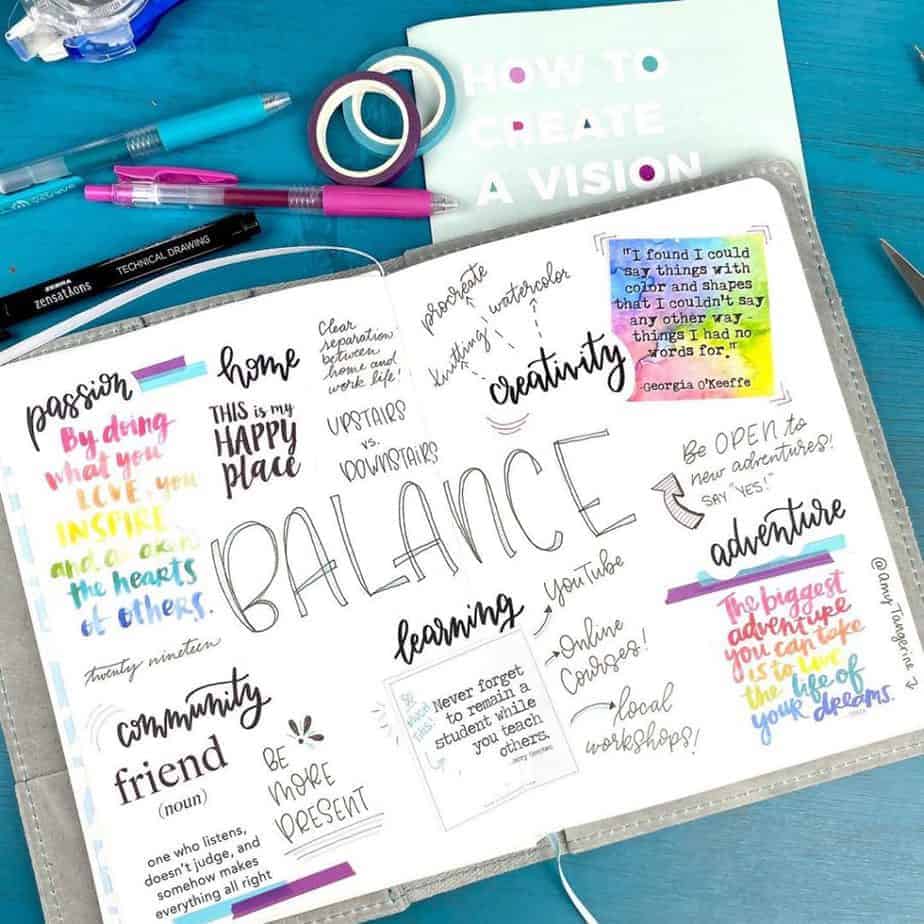 HOW TO
CREATE
A VISION
ZEBRA
zensations
TECHNICAL DRAWING
passion
By doing
what you
LOVE, you
INSPIRE
and awaken
the hearts
of others.
twenty nineteen
home
THIS is my
HAPPY
place
Clear
separation
between
home and
work life!
UPSTAIRS
vs.
DOWNSTAIRS
procreate
knitting
watercolor
creativity
"I found I could
say things with
color and shapes
that I couldn't say
any other way -
things I had no
words for."
-Georgia O'Keeffe
BALANCE
Be OPEN to
new adventures!
SAY "YES!"
adventure
The biggest
adventure
you can take
is to LIVE
the life of
your dreams.
@amy Tangerine
learning
YouTube
Online
Courses!
local
workshops!
Never forget
to remain a
student while
you teach
others.
community
friend
(noun)
one who listens,
doesn't judge, and
somehow makes
everything all right
BE
MORE
PRESENT